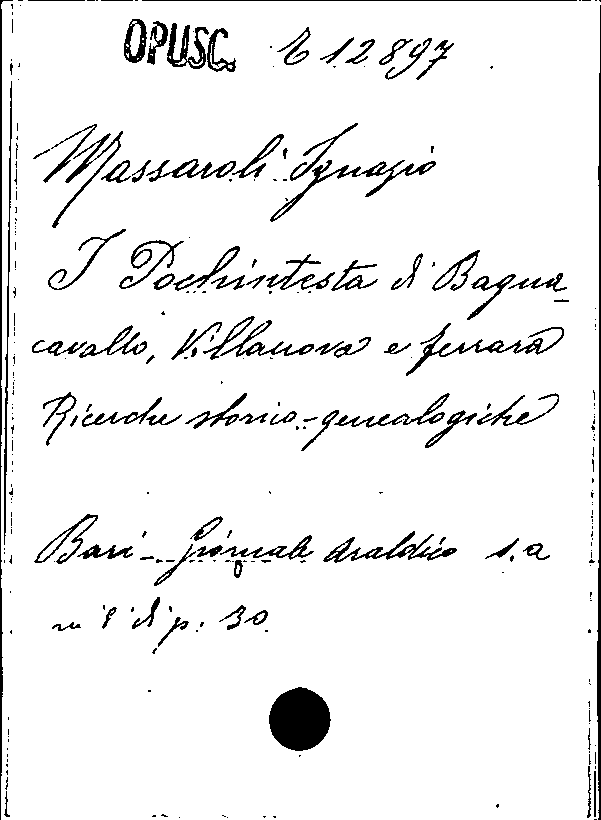 OPUSC. E 12897
Massaroli Ignazio
I Pochintesta di Bagna-
cavallo, Villanova e Ferrara
Ricerche storico-genealogiche
Bari - Giornale Araldico s.a
in 8° di p. 30